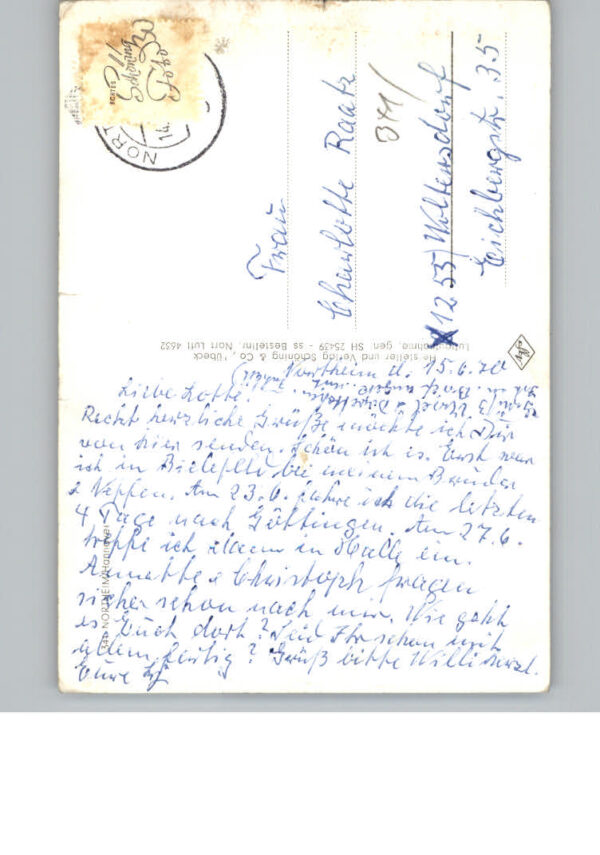 Northeim d. 15.6.70
Liebe Lotte!
Recht herzliche Grüße möchte ich Dir
von hier senden. Schön ist es. Erst war
ich in Bielefeld bei meinem Bruder
2 Neffen. Am 23.6. fahre ich die letzten
4 Tage nach Göttingen. Am 27.6.
treffe ich dann in Halle ein.
Annette & Christoph fragen
sicher schon nach mir. Wie geht
es Euch dort? Seid Ihr schon mit
allem fertig? Grüß bitte Willi
Eure
Frau
Charlotte Raatz
1255 Woltersdorf
Eichbergstr. 35
Hersteller und Verlag Schöning & Co., Lübeck
gen. SH 25439 - ss Bestellnr. Nort Luft 4632
NORTHEIM/Hannover
Schöning
Foto
NORT
14.